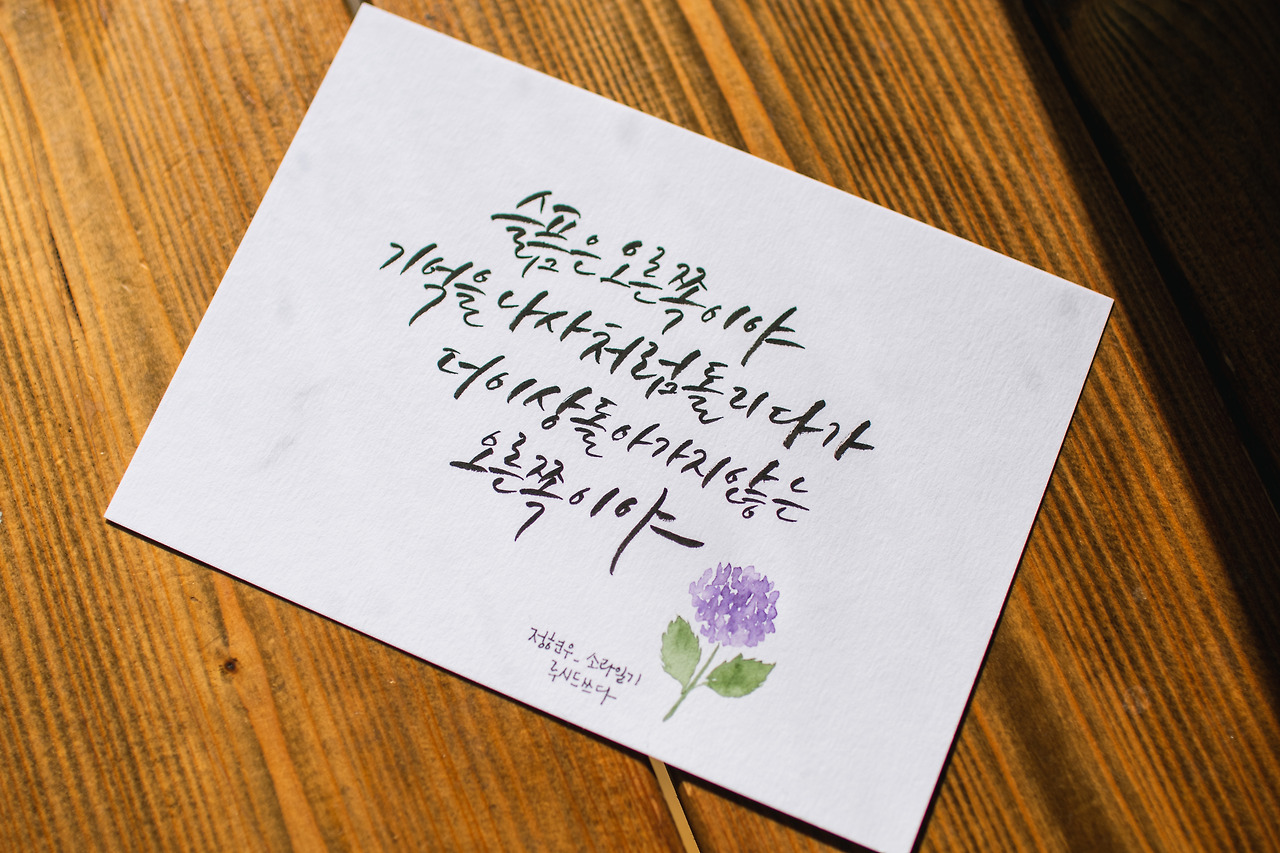 슬픔은 오른쪽이야
기억을 나사처럼 돌리다가
더 이상 돌아가지 않는
오른쪽이야
정현우_소라일기
루시드쓰다